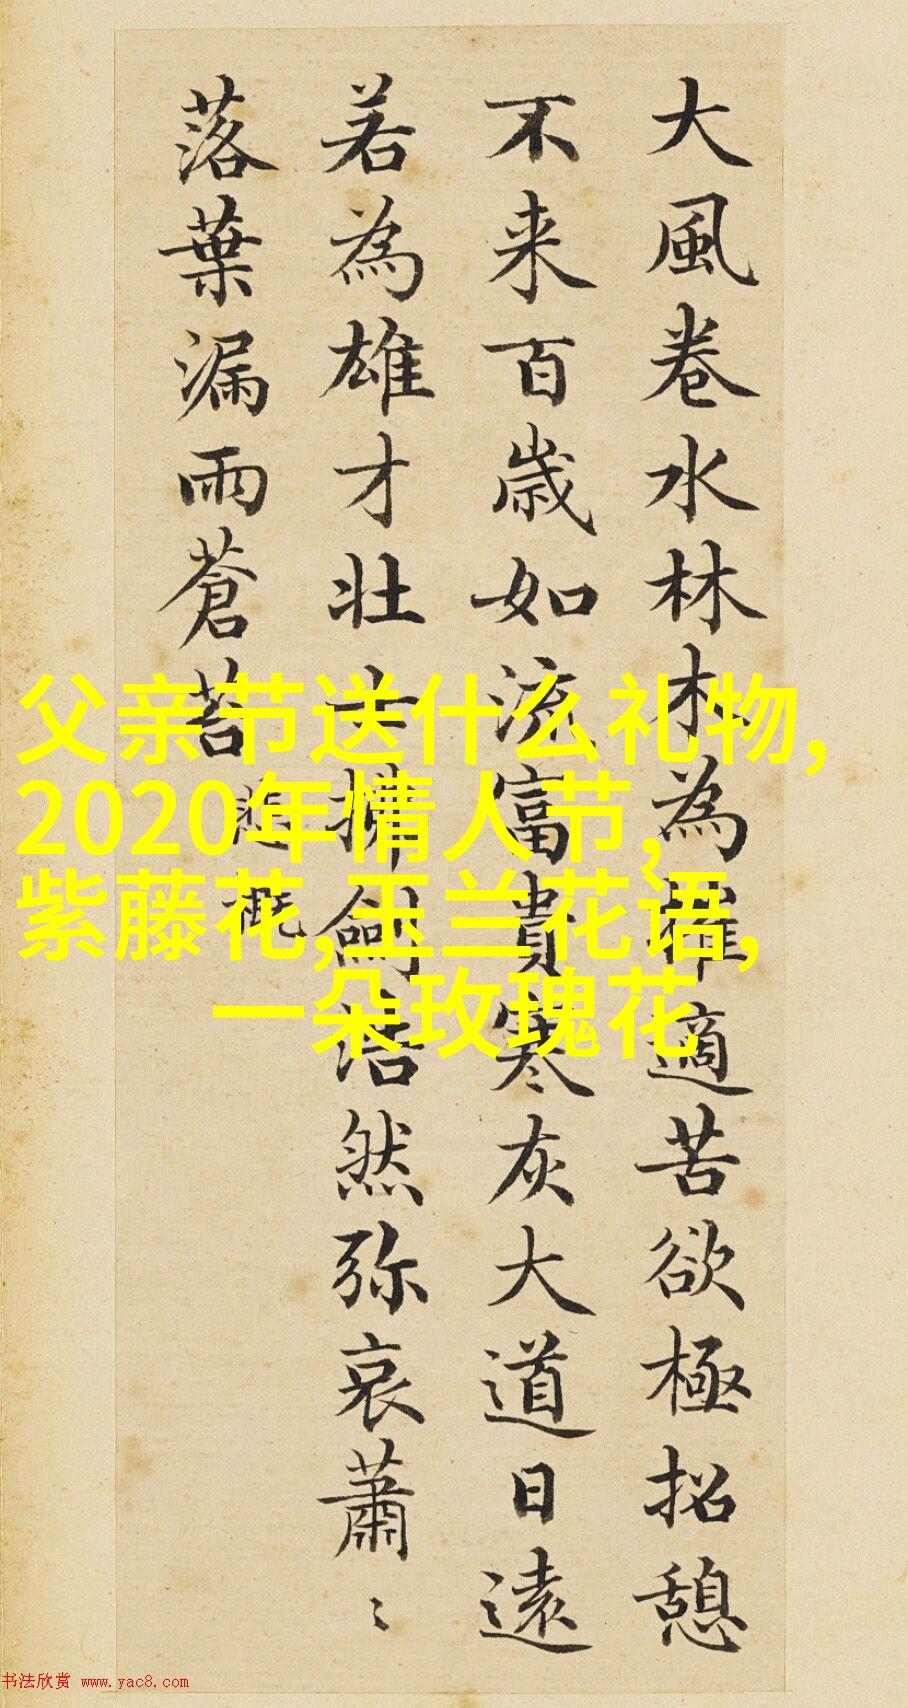 大風卷水林木為摧適苦欲極招憩
不来百歳如流富貴寒灰大道日遠
若為雄才壮士拂劍浩然弥哀蕭〻
落葉漏雨蒼苔
悲慨
父亲节送什么礼物,
2020年情人节,
紫藤花,玉兰花语,
一朵玫瑰花
书法欣赏 www.yac8.com